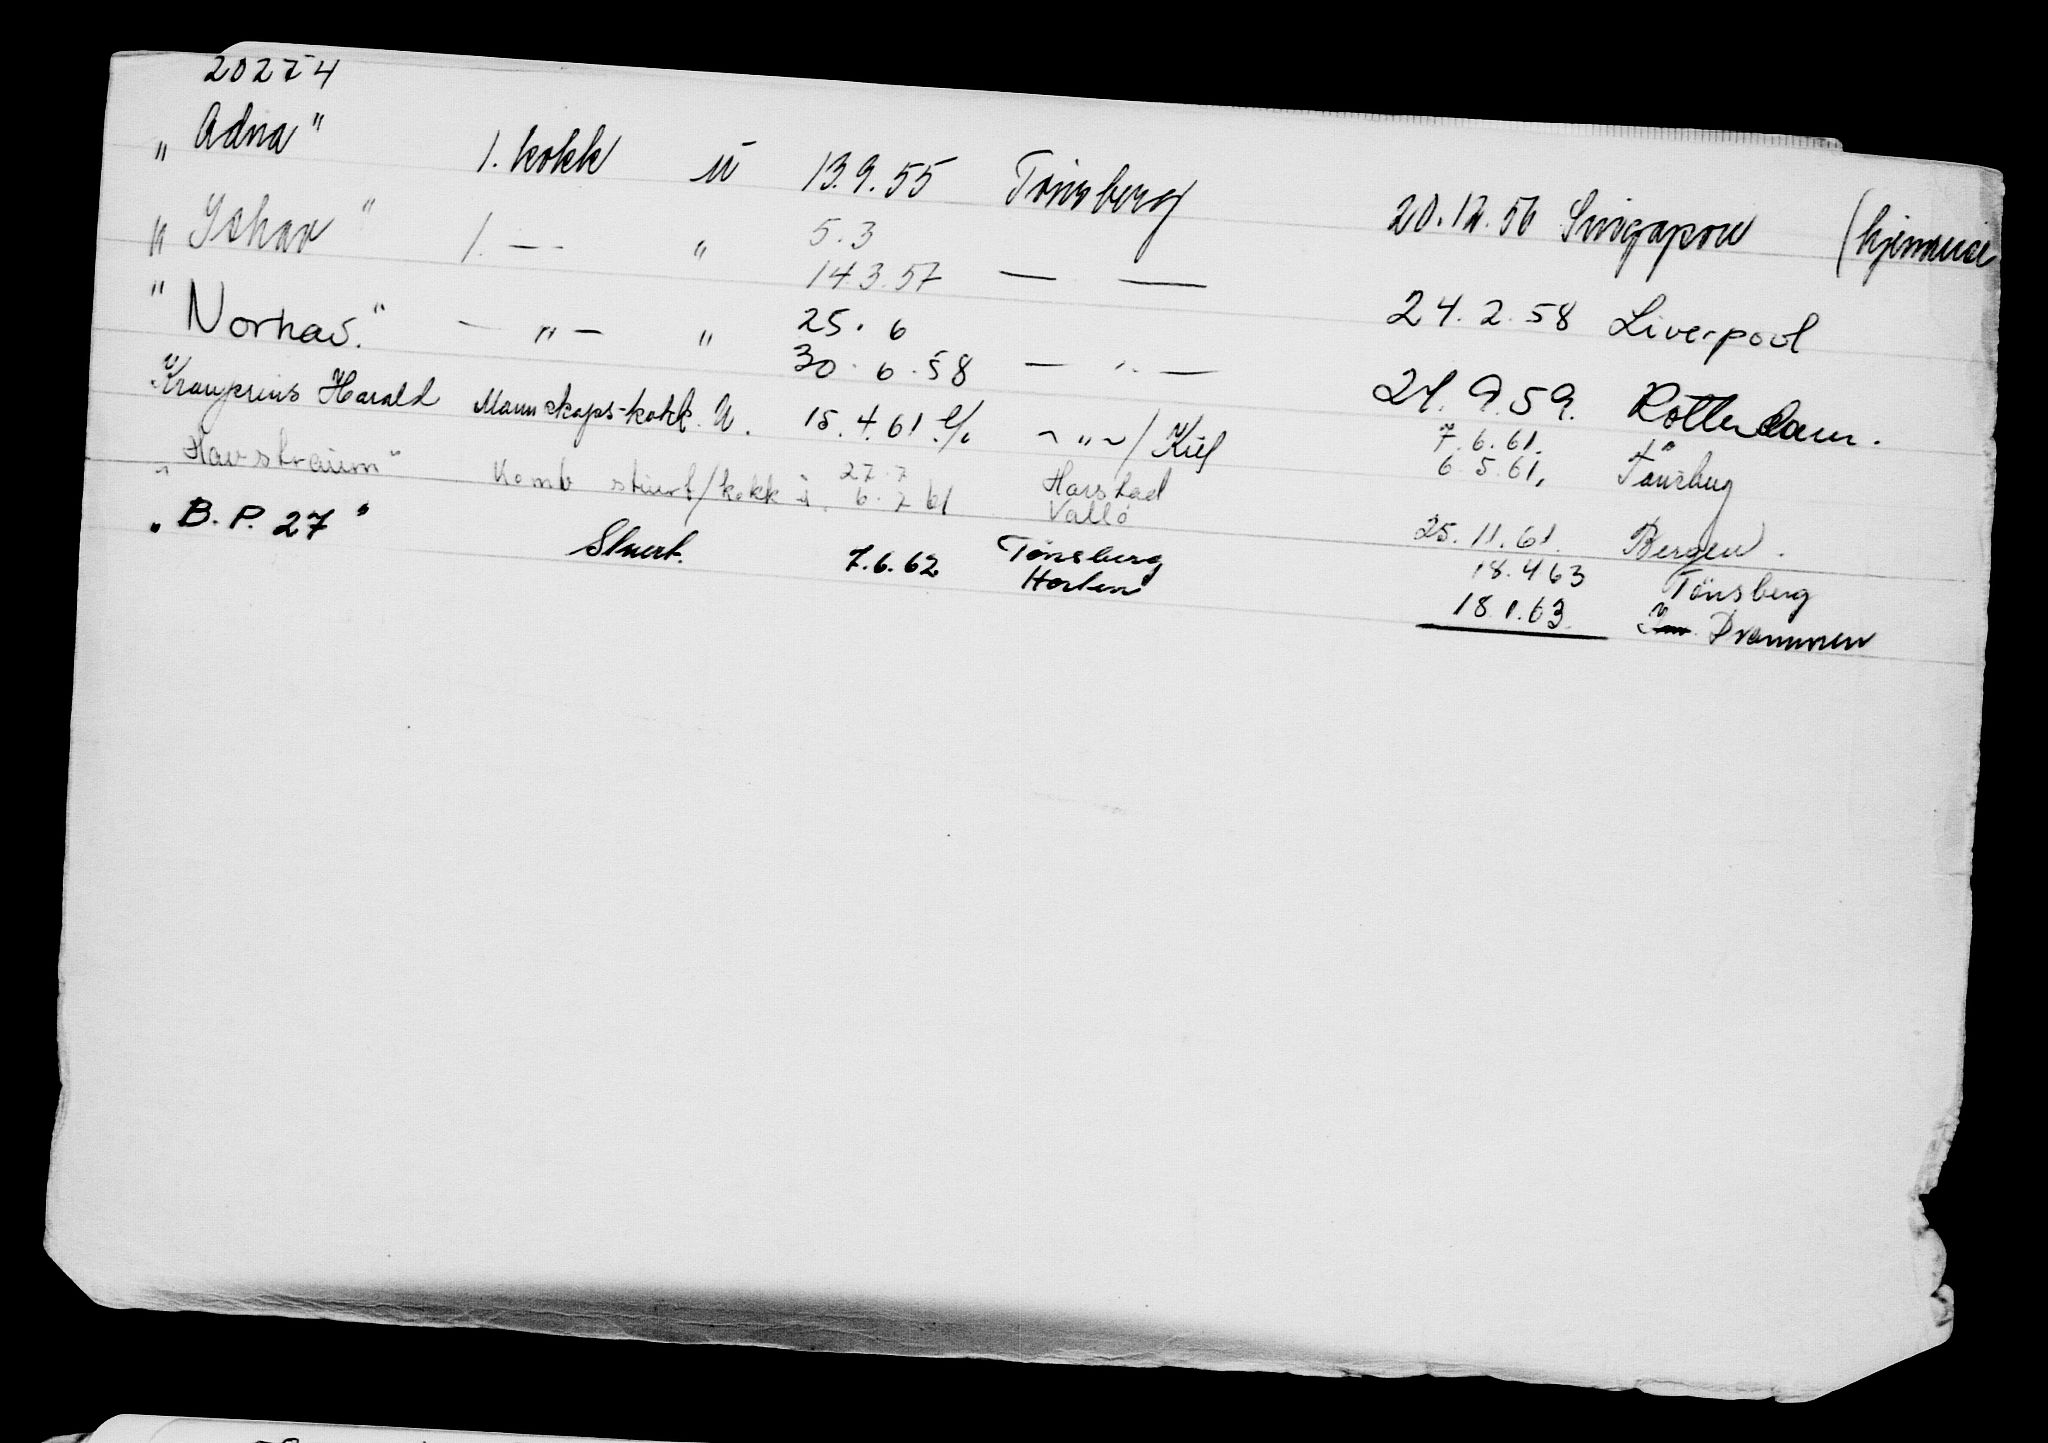 20274
„ Adna " 1. kokk u 13.9.55 Tønsberg 20.12.56 Singapore
" " 1. — " 5.3
14.3.57 — — 24.2.58 Liverpool
" Norhav." — " — " 25.6
30.6.58 — " — 24.9.59. Rotterdam.
"Kronprins Harald Mannskaps-kokk. u. 15.4.61 — " — / Kiel 7.6.61.
6.5.61, Tönsberg
"Havstraum" Komb stuert/kokk 27.7 Harstad
6.7 61 Vallö 25.11.61. Bergen.
„ B.P. 27 " Stuert. 7.6.62 Tönsberg 18.4 63 Tönsberg
Horten 18.1.63. Drammen